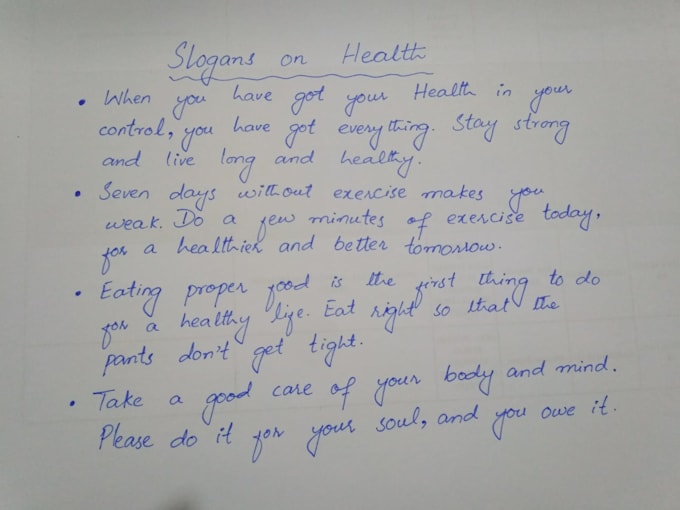 Slogans on Health
• When you have got your Health in your
control, you have got everything. Stay strong
and live long and healthy.
• Seven days without exercise makes you
weak. Do a few minutes of exercise today,
for a healthier and better tomorrow.
• Eating proper food is the first thing to do
for a healthy life. Eat right so that the
pants don't get tight.
• Take a good care of your body and mind.
Please do it for your soul, and you owe it.